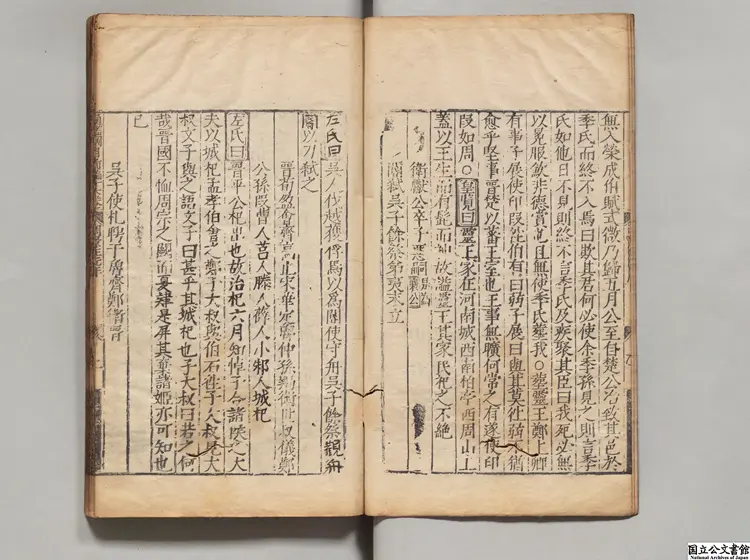 無入榮成伯賦式微乃歸五月公至自楚公冶致其邑於
季氏而終不入焉曰欺其君何必使余季孫見之則言季
氏如他日不見則終不言季氏及疾聚其臣曰我死必無
以冕服歛非德賞也且無使季氏葬我○葬靈王鄭上卿
有事子展使印段往伯有曰弱子展曰與其莫往弱不猶
愈乎堅事晉楚以蕃王室也王事無曠何常之有遂使印
段如周○皇覽曰靈王冢在河南城西南柏亭西周山上
蓋以王生而有髭而神故謚靈王其冢民祀之不絶
衛獻公卒子惡嗣是爲襄公
閽弑吳子餘祭弟夷末立
左氏曰吳人伐越獲俘焉以爲閽使守舟吳子餘祭觀舟
閽以刀弑之
晉荀盈合齊高止宋華定魯仲孫羯衛世叔儀鄭
公孫段曹人莒人滕人薛人小邾人城杞
左氏曰晉平公杞出也故治杞六月知悼子合諸侯之大
夫以城杞孟孝伯會之鄭子大叔與伯石往子大叔見大
叔文子與之語文子曰甚乎其城杞也子大叔曰若之何
哉晉國不恤周宗之闕而夏肄是屏其棄諸姬亦可知也
已
吳子使札聘于魯齊鄭衛晉
国立公文書館
National Archives of Japan